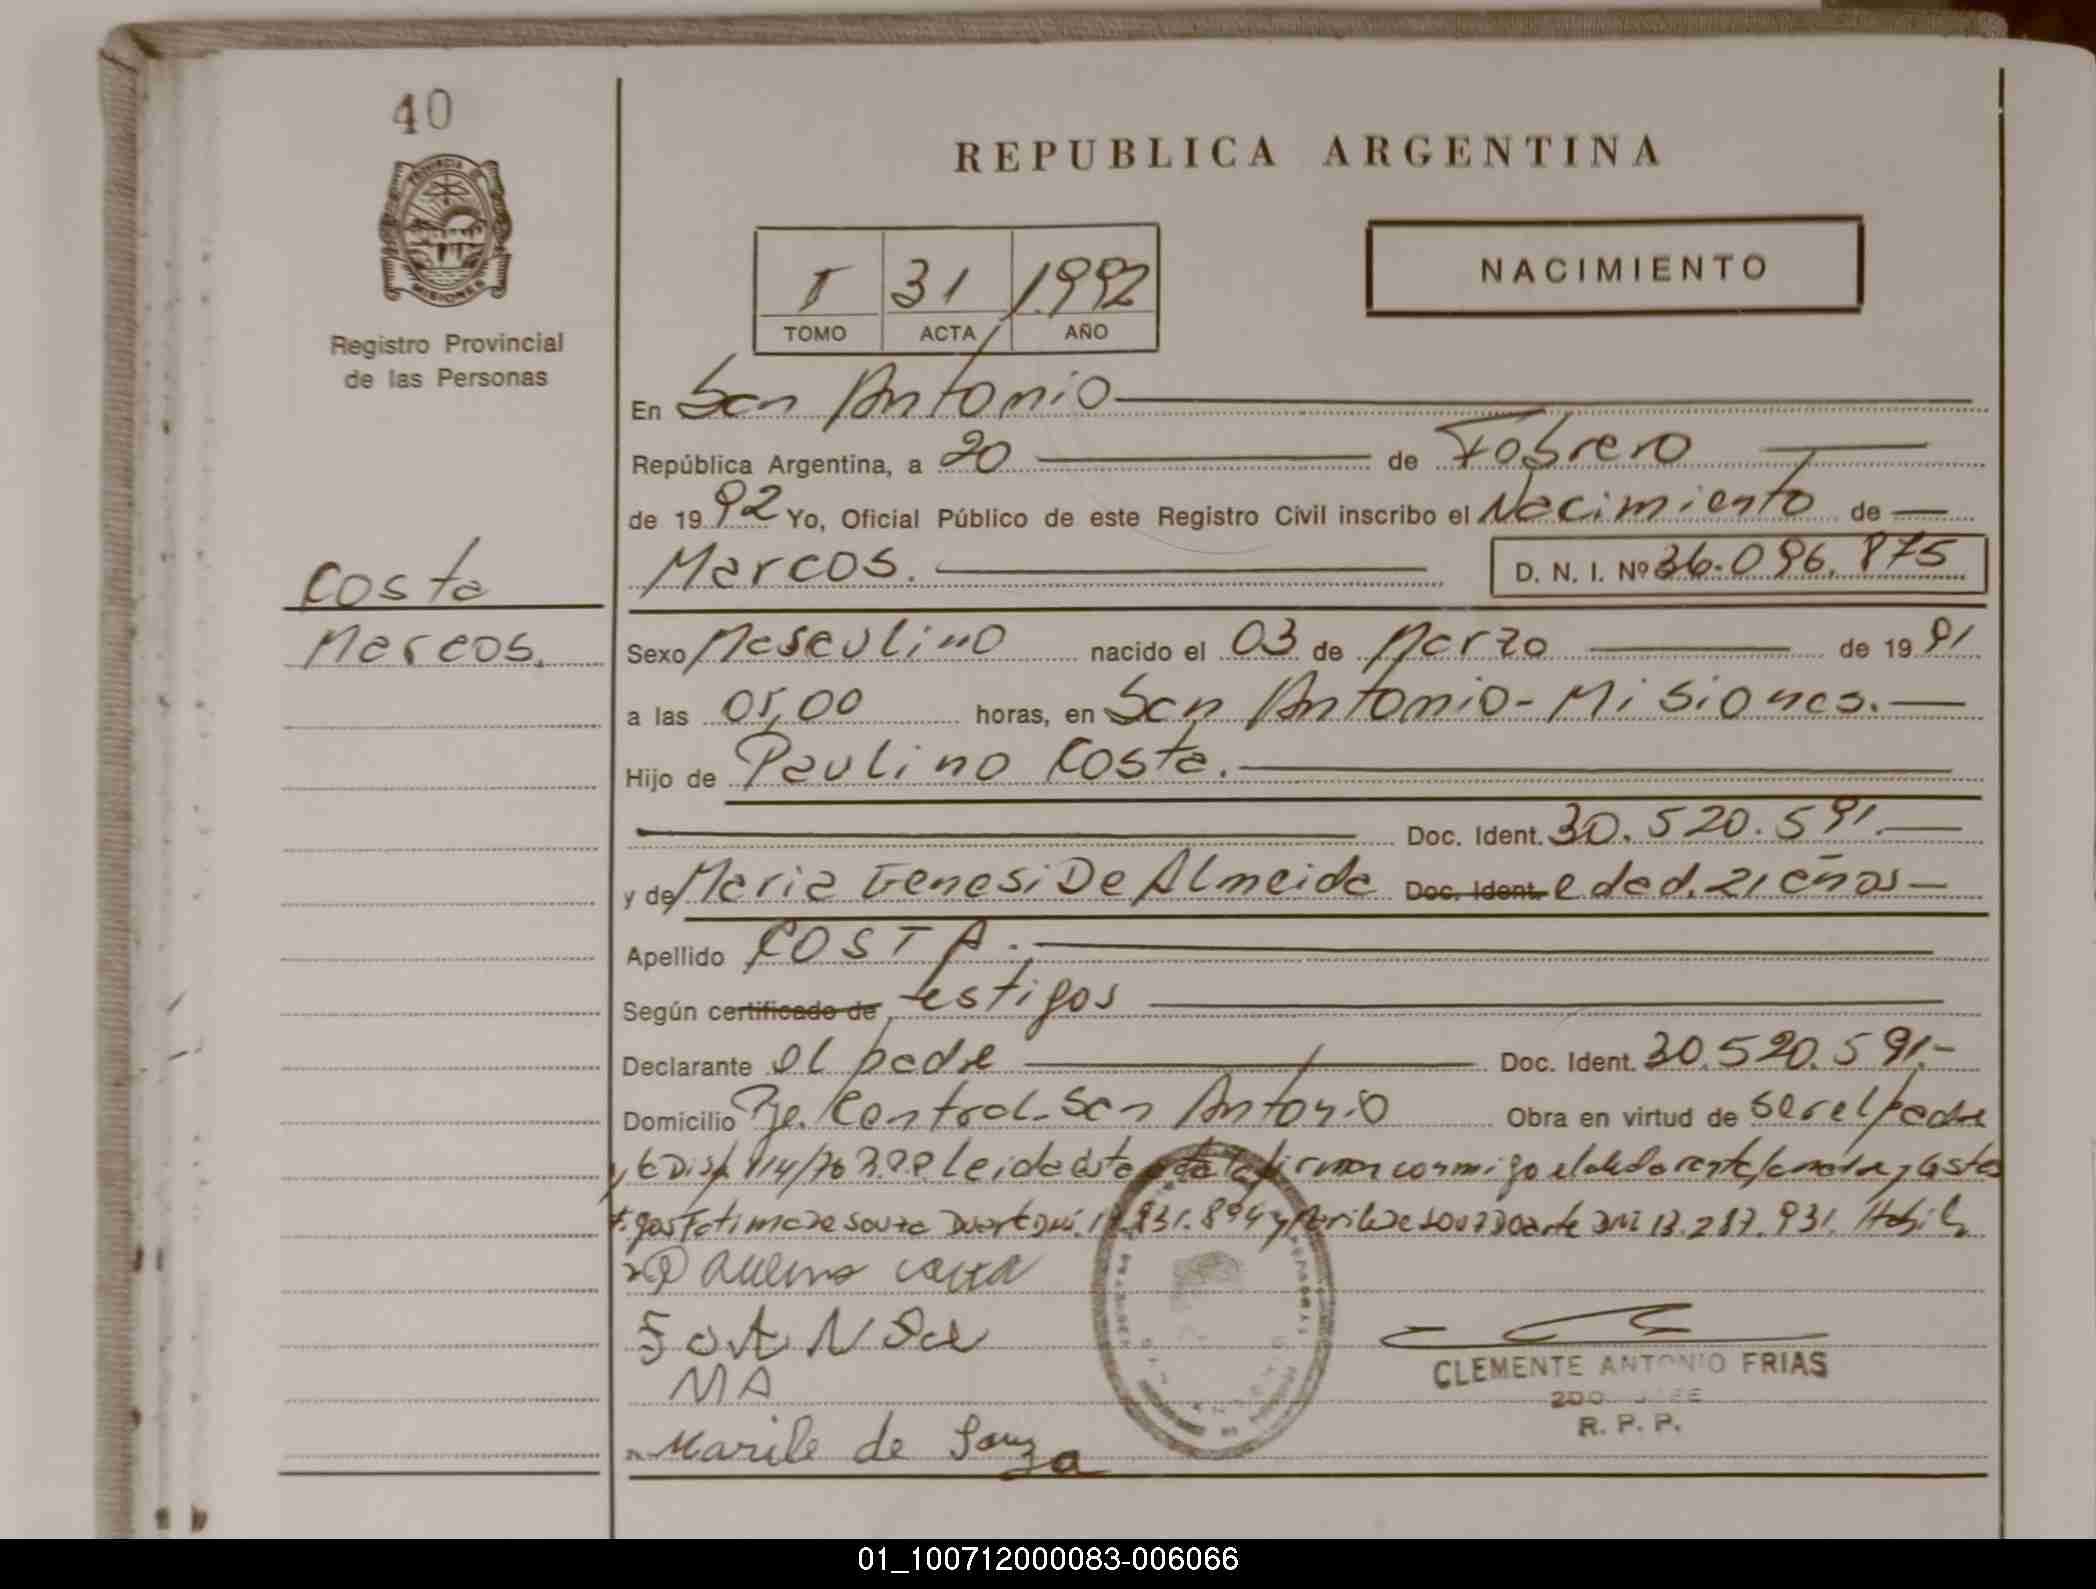 40
REPUBLICA ARGENTINA
PROVINCIA DE
MISIONES
Registro Provincial
de las Personas
NACIMIENTO
I 31 1.992
TOMO ACTA AÑO
En San Antonio
República Argentina, a 20 de Febrero
de 1992 Yo, Oficial Público de este Registro Civil inscribo el Nacimiento de
Marcos. D. N. I. Nº 36.096.875
Costa
Marcos.
Sexo Masculino nacido el 03 de Marzo de 1991
a las 05,00 horas, en San Antonio - Misiones.
Hijo de Paulino Costa.
Doc. Ident. 30.520.591.
y de Maria Genesi De Almeida Doc. Ident. edad. 21 años
Apellido COSTA.
Según certificado de testigos
Declarante el padre Doc. Ident. 30.520.591.-
Domicilio Pje. Central - San Antonio Obra en virtud de ser el padre
y la Disp. 114/76 R.P.P. Leida esta acta la firman conmigo el declarante, la madre y los tes
tigos Fatima de Souza Duarte DNI. 831.894 y Marile de Souza Duarte DNI 13.287.931. Habil
Paulino Costa
MA
Marile de Souza
CLEMENTE ANTONIO FRIAS
2DO. JEFE
R. P. P.
01_100712000083-006066